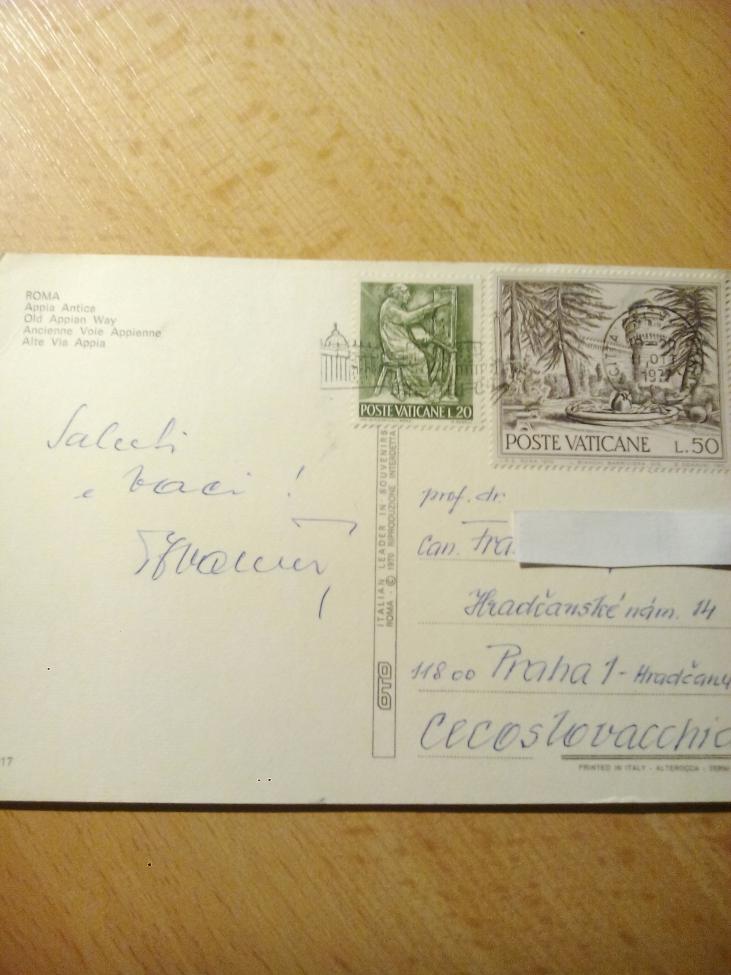 ROMA
Appia Antica
Old Appian Way
Ancienne Voie Appienne
Alte Via Appia
POSTE VATICANE L.20
POSTE VATICANE L.50
Saluti
e baci !
ITALIAN LEADER IN SOUVENIRS
ROMA - © 1970 RIPRODUZIONE INTERDETTA
OTO
prof. dr.
Can. Fra
Hradčanské nám. 14
118 00 Praha 1 - Hradčany
Cecoslovacchia
17
PRINTED IN ITALY - ALTEROCCA - TERNI